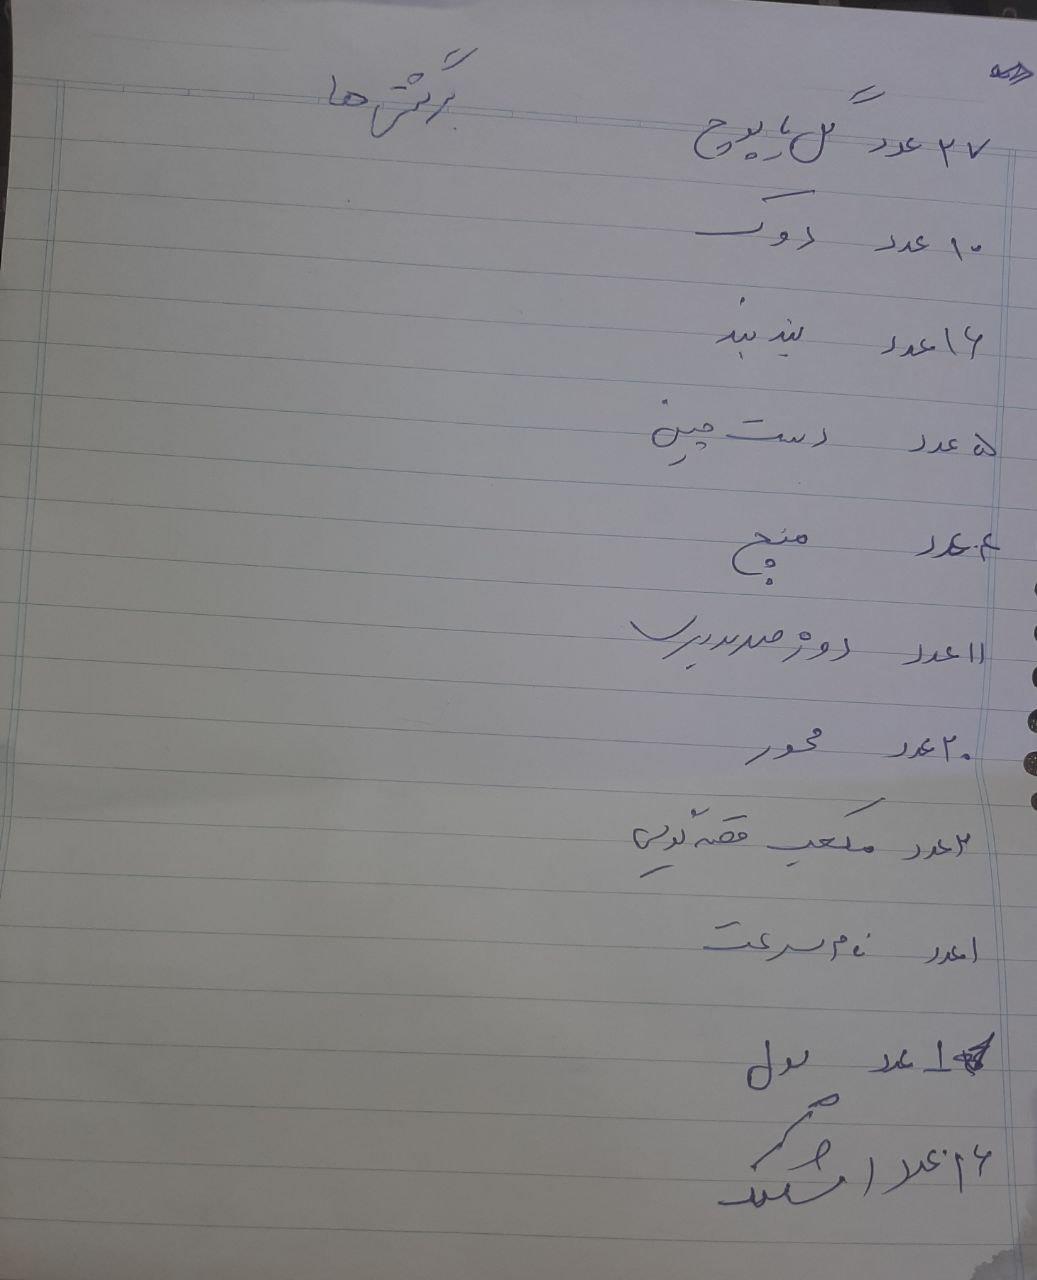 برگشتی ها
۲۷ عدد گل یا پوچ
۱۰ عدد دوک
۱۶ عدد بند بند
۵ عدد دست چین
۴ عدد منچ
۱۱ عدد دوز
۲۰ عدد محور
۲ عدد مکعب قصه گویی
۱ عدد نام سرعت
۱ عدد
۲۶ عدد